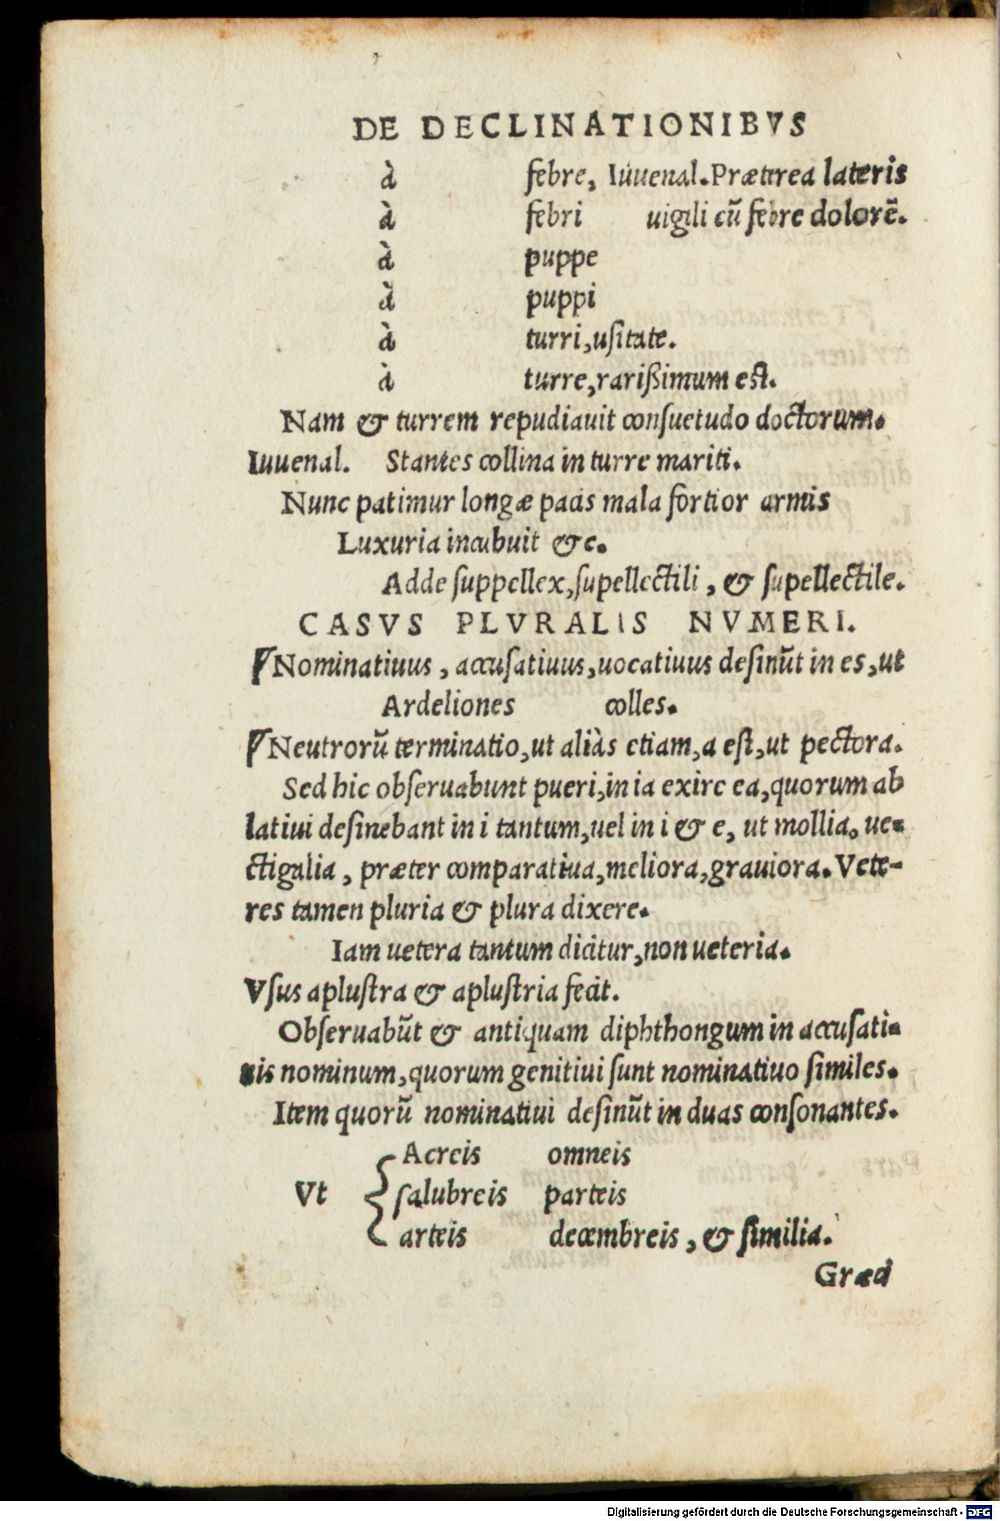 DE DECLINATIONIBVS
à febre, Iuuenal. Præterea lateris
à febri uigili cũ febre dolorẽ.
à puppe
à puppi
à turri, usitate.
à turre, rarißimum est.
Nam & turrem repudiauit consuetudo doctorum.
Iuuenal. Stantes collina in turre mariti.
Nunc patimur longæ pacis mala fortior armis
Luxuria incubuit &c.
Adde suppellex, supellectili, & supellectile.
CASVS PLVRALIS NVMERI.
Nominatiuus, accusatiuus, uocatiuus desinũt in es, ut
Ardeliones colles.
Neutrorũ terminatio, ut aliàs etiam, a est, ut pectora.
Sed hic obseruabunt pueri, in ia exire ea, quorum ab
latiui desinebant in i tantum, uel in i & e, ut mollia, ue-
ctigalia, præter comparatiua, meliora, grauiora. Vete-
res tamen pluria & plura dixere.
Iam uetera tantum dicitur, non ueteria.
Vsus aplustra & aplustria fecit.
Obseruabũt & antiquam diphthongum in accusati-
uis nominum, quorum genitiui sunt nominatiuo similes.
Item quorũ nominatiui desinũt in duas consonantes.
Acreis omneis
Vt salubreis parteis
arteis decembreis, & similia.
Græci
Digitalisierung gefördert durch die Deutsche Forschungsgemeinschaft - DFG